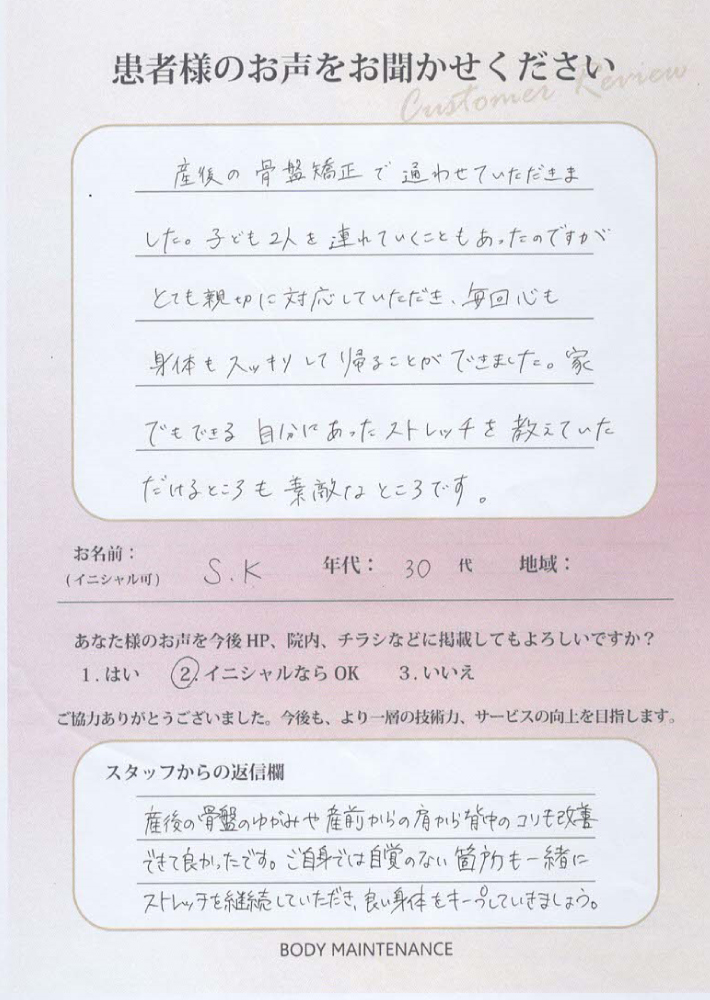 患者様のお声をお聞かせください
Customer Review
産後の骨盤矯正で通わせていただきま
した。子ども2人を連れていくこともあったのですが
とても親切に対応していただき、毎回心も
身体もスッキリして帰ることができました。家
でもできる自分にあったストレッチを教えていた
だけるところも素敵なところです。
お名前：
(イニシャル可) S.K 年代： 30 代 地域：
あなた様のお声を今後 HP、院内、チラシなどに掲載してもよろしいですか？
1.はい 2.イニシャルなら OK 3.いいえ
ご協力ありがとうございました。今後も、より一層の技術力、サービスの向上を目指します。
スタッフからの返信欄
産後の骨盤のゆがみや産前からの肩から背中のコリも改善
できて良かったです。ご自身では自覚のない箇所も一緒に
ストレッチを継続していただき、良い身体をキープしていきましょう。
BODY MAINTENANCE